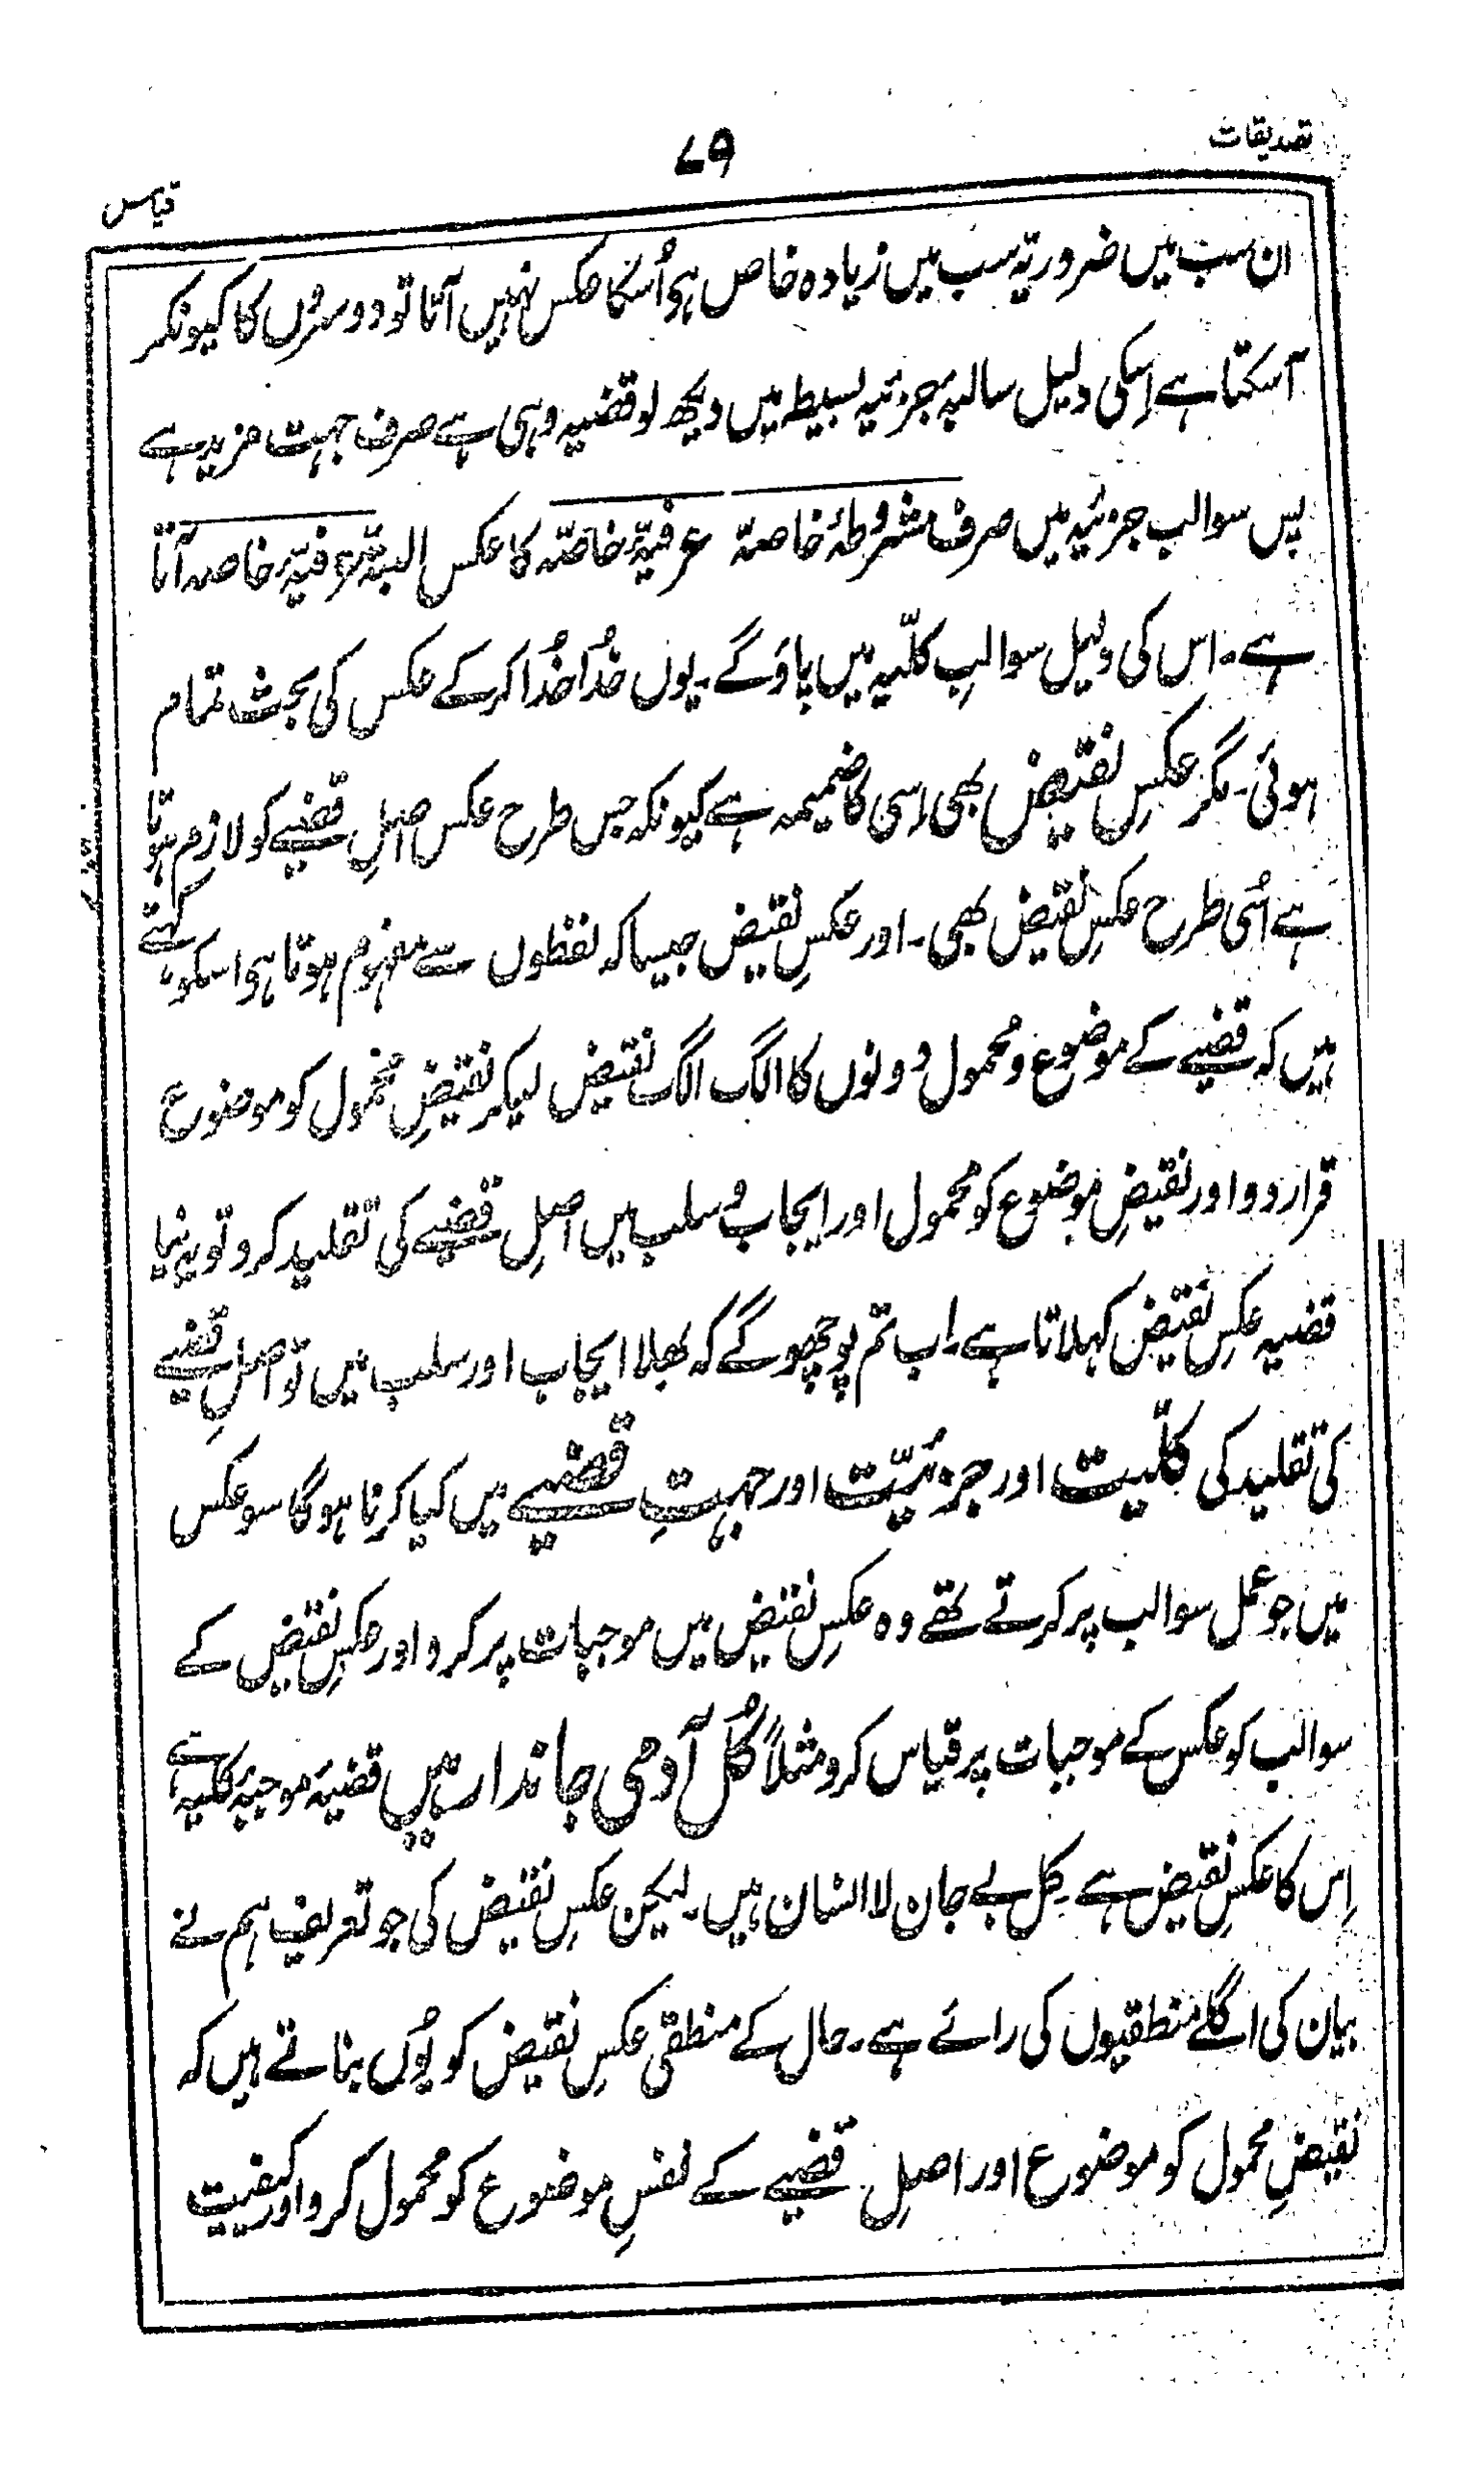 تصدیقات
۷۹
قیاس
ان سب میں ضروریہ سب میں زیادہ خاص ہی اُسکا عکس نہیں آتا تو دوسروں کا کیونکر
آسکتا ہے اِسکی دلیل سالبۂ جزئیہ بسیطہ میں دیکھ لو قضیہ وہی ہے صرف جہت مزید ہے
پس سوالب جزئیہ میں صرف مشروطۂ خاصہ عرفیۂ خاصّہ کا عکس البتہ عرفیۂ خاصہ آتا
ہے۔ اس کی دلیل سوالبِ کلّیہ میں پاؤگے۔ یوں خُدا خُدا کرکے عکس کی بحث تمام
ہوئی۔ مگر عکسِ نقیض بھی اِسی کا ضمیمہ ہے کیونکہ جس طرح عکس اصلِ قضیے کو لازم ہوتا
ہے اُسی طرح عکسِ نقیض بھی۔ اور عکسِ نقیض جیسا کہ لفظوں سے مفہوم ہوتا ہی اسکو کہتے
ہیں کہ قضیے کے موضوع و محمول دونوں کا الگ الگ نقیض لیکر نقیضِ محمول کو موضوع
قرار دو اور نقیضِ موضوع کو محمول اور ایجاب و سلب میں اصلِ قضیے کی تقلید کرو تو یہ نیا
قضیہ عکسِ نقیض کہلاتا ہے۔ اب تم پوچھوگے کہ بھلا ایجاب اور سلب میں تو اصلِ قضیے
کی تقلید کی کلّیت اور جزئیّت اور جہتِ قضیے میں کیا کرنا ہوگا سو عکس
میں جو عمل سوالب پر کرتے تھے وہ عکسِ نقیض میں موجبات پر کرو اور عکسِ نقیض کے
سوالب کو عکس کے موجبات پر قیاس کرو مثلاً کُل آدمی جاندار ہیں قضیۂ موجبۂ کلیہ ہے
اِس کا عکسِ نقیض ہے کل بے جان لا انسان ہیں۔ لیکن عکسِ نقیض کی جو تعریف ہم نے
بیان کی اگلے منطقیوں کی رائے ہے۔ حال کے منطقی عکسِ نقیض کو یُوں بناتے ہیں کہ
نقیضِ محمول کو موضوع اور اصلِ قضیے کے نفسِ موضوع کو محمول کرو اور کیفیت